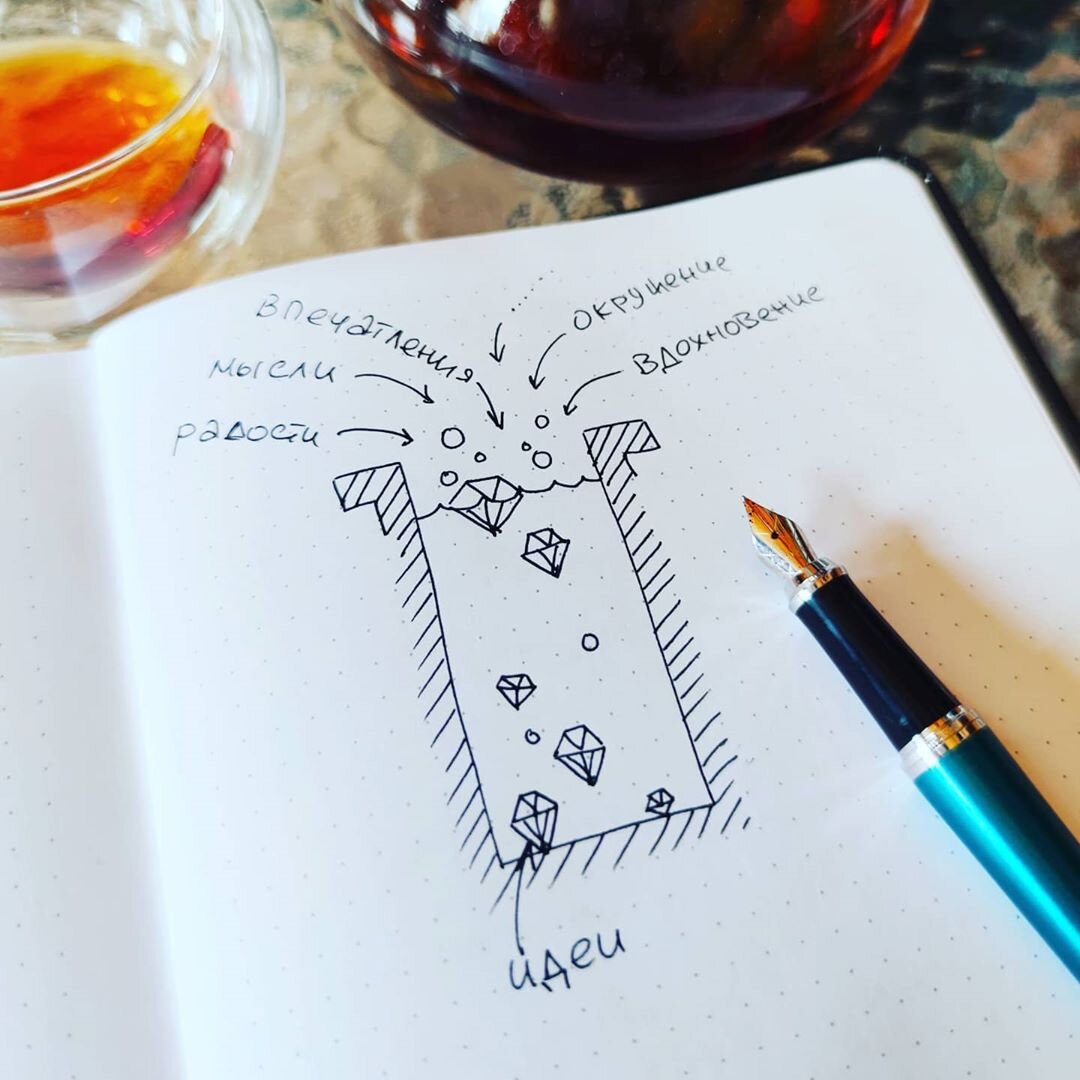 впечатления
окружение
мысли
вдохновение
радости
идеи